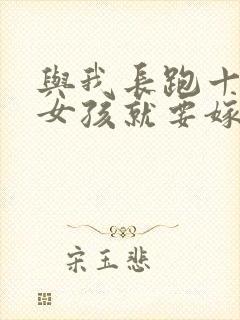 與我長跑十
女孩就要嫁
宋玉悲